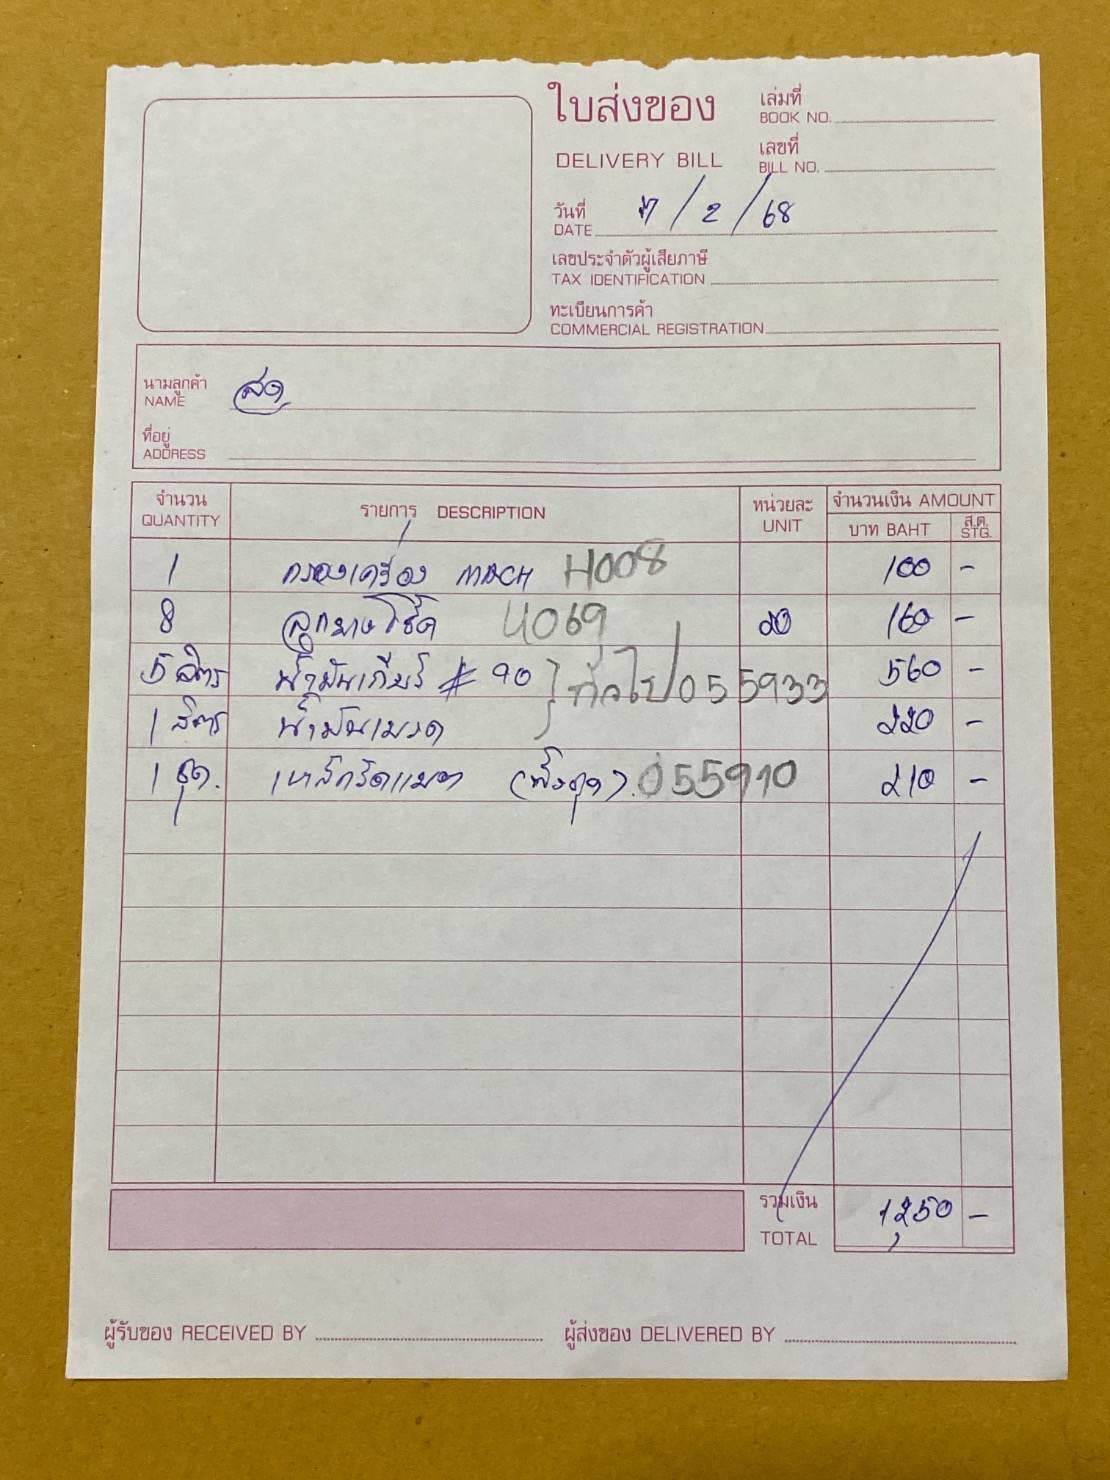 ใบส่งของ
เล่มที่
BOOK NO.
DELIVERY BILL
เลขที่
BILL NO.
วันที่
DATE 7/2/68
เลขประจำตัวผู้เสียภาษี
TAX IDENTIFICATION
ทะเบียนการค้า
COMMERCIAL REGISTRATION
นามลูกค้า สด
NAME
ที่อยู่
ADDRESS
จำนวน รายการ DESCRIPTION หน่วยละ จำนวนเงิน AMOUNT
QUANTITY UNIT บาท BAHT ส.ต. STG.
1 กรองเครื่อง H008 100 -
8 ลูกยางโช๊ค 4069 20 160 -
5 ลิตร น้ำมันเกียร์ # 90 } ทั่วไป 055933 560 -
1 ลิตร น้ำมันเบรค 220 -
1 ชุด. เหล็กรัดแมค 055910 210 -
รวมเงิน
TOTAL 1,250 -
ผู้รับของ RECEIVED BY ผู้ส่งของ DELIVERED BY